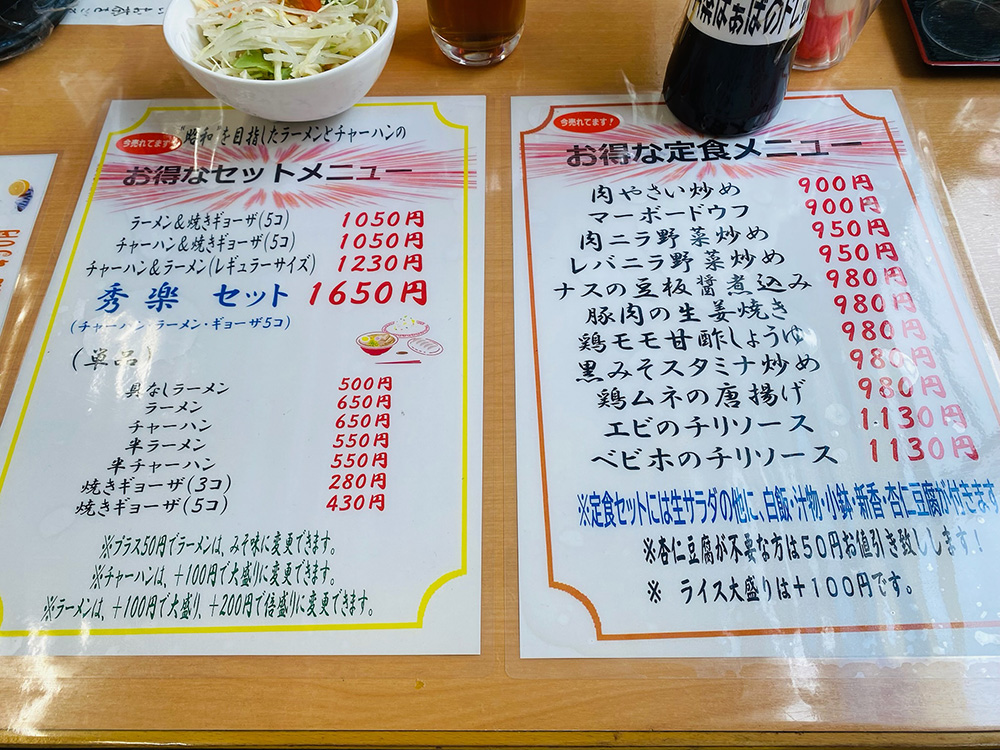 今売れてます！
"昭和"を目指したラーメンとチャーハンの
お得なセットメニュー
ラーメン&焼きギョーザ(5コ) 1050円
チャーハン&焼きギョーザ(5コ) 1050円
チャーハン&ラーメン(レギュラーサイズ) 1230円
秀楽 セット 1650円
(チャーハン・ラーメン・ギョーザ5コ)
(単品)
具なしラーメン 500円
ラーメン 650円
チャーハン 650円
半ラーメン 550円
半チャーハン 550円
焼きギョーザ(3コ) 280円
焼きギョーザ(5コ) 430円
※プラス50円でラーメンは、みそ味に変更できます。
※チャーハンは、+100円で大盛りに変更できます。
※ラーメンは、+100円で大盛り、+200円で倍盛りに変更できます。
今売れてます！
お得な定食メニュー
肉やさい炒め 900円
マーボードウフ 900円
肉ニラ野菜炒め 950円
レバニラ野菜炒め 950円
ナスの豆板醤煮込み 980円
豚肉の生姜焼き 980円
鶏モモ甘酢しょうゆ 980円
黒みそスタミナ炒め 980円
鶏ムネの唐揚げ 980円
エビのチリソース 1130円
ベビホのチリソース 1130円
※定食セットには生サラダの他に、白飯・汁物・小鉢・新香・杏仁豆腐が付きます
※杏仁豆腐が不要な方は50円お値引き致しします！
※ ライス大盛りは+100円です。